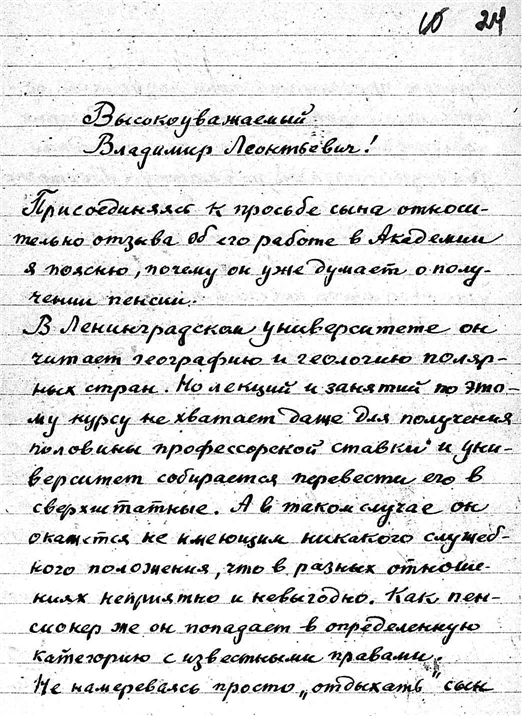 24
Высокоуважаемый
Владимир Леонтьевич!
Присоединяясь к просьбе сына относи-
тельно отзыва об его работе в Академии
я поясню, почему он уже думает о полу-
чении пенсии.
В Ленинградском университете он
читает географию и геологию поляр-
ных стран. Но лекций и занятий по это-
му курсу не хватает даже для получения
половины профессорской ставки и уни-
верситет собирается перевести его в
сверхштатные. А в таком случае он
окажется не имеющим никакого служеб-
ного положения, что в разных отноше-
ниях неприятно и невыгодно. Как пен-
сионер же он попадает в определенную
категорию с известными правами.
Не намереваясь просто „отдыхать" сын